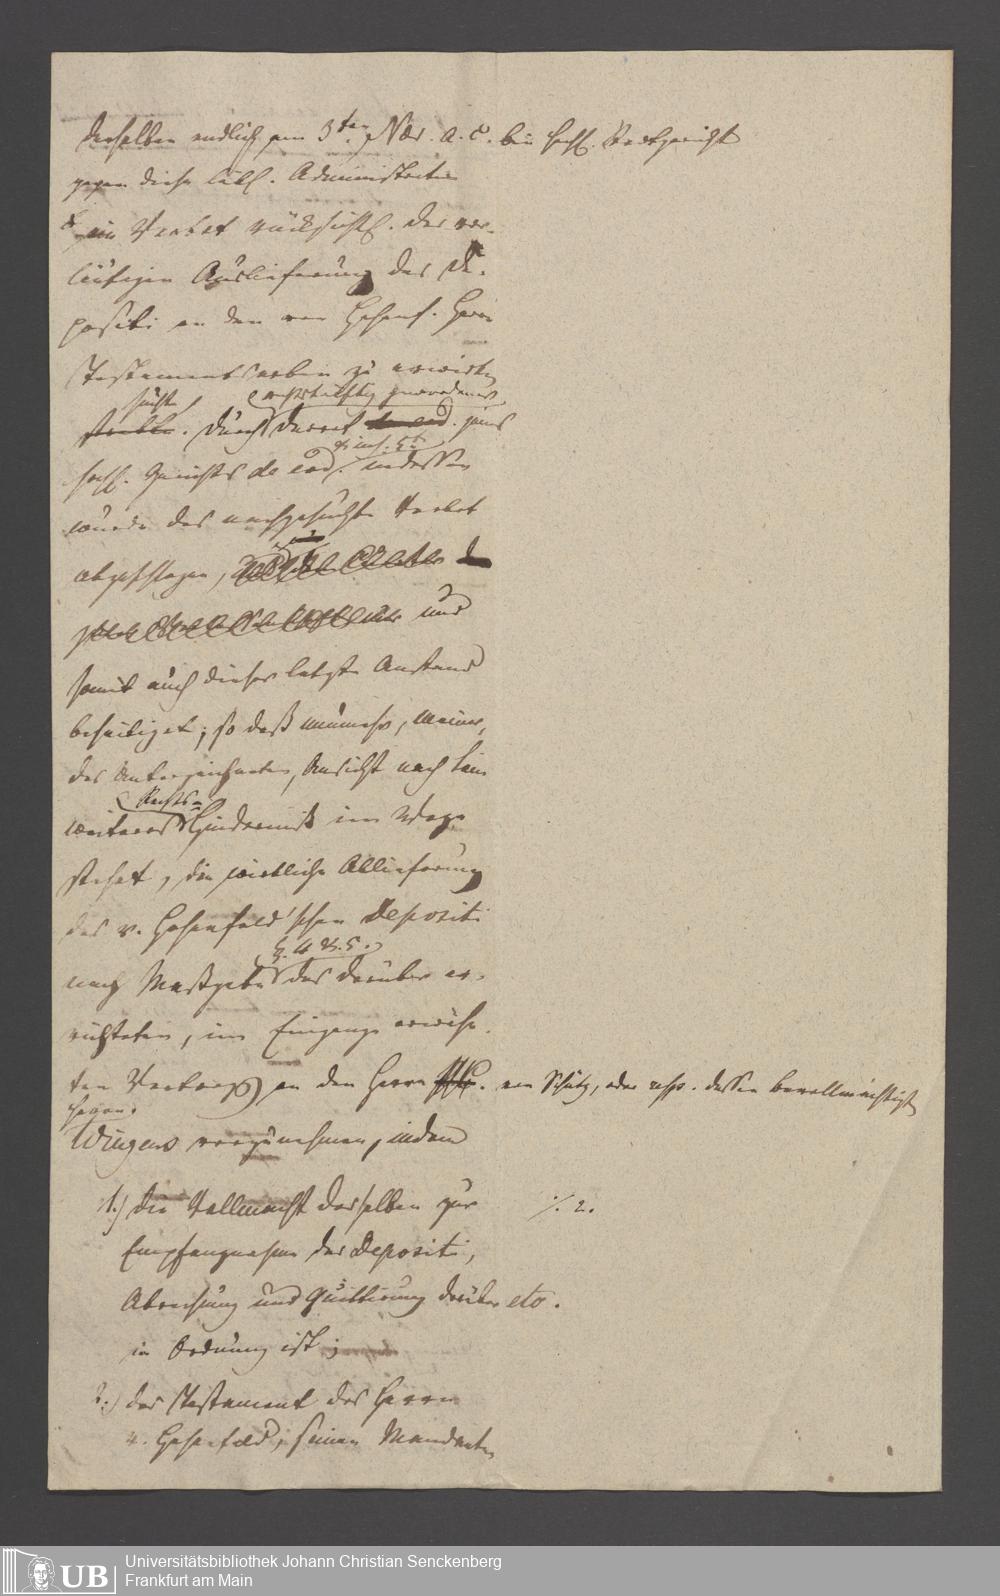 derselben endlich am 3ten Nov. a. c. bei hochl. Stadtgericht
gegen diese löbl. Administration
ein Verbot rücksichtl. der vor-
läufigen Auslieferung des De-
positi an den von Hohenf. Herrn
Testamentserben zu erwirken
suchte,
rechtskräftig gewordenes
. Durch Decret jenes
hochl. Gerichts de eod. indessen
wurde das nachgesuchte Verbot
abgeschlagen,
und
somit auch dieser letzte Anstand
beseitiget; so daß nunmehr, meiner,
des Unterzeichneten, Ansicht nach kein
Rechts-
weiteres Hinderniß im Wege
stehet, die wirkliche Ablieferung
des v. Hohenfeld'schen Depositi
§. 4 & 5.
nach Maßgabe des darüber er-
richteten, im Eingange erwähn-
ten Vertrags an den Herrn von Schütz, oder resp. dessen bevollmächtigt
Herrn
Wingens vorzunehmen, indem
1.) die Vollmacht desselben zur
./. 2.
Empfangnahme des Depositi,
Abrechnung und Quittirung darüber etc.
in Ordnung ist;
2.) das Testament des Herrn
v. Hohenfeld, seinen Mandanten
Universitätsbibliothek Johann Christian Senckenberg
Frankfurt am Main
UB